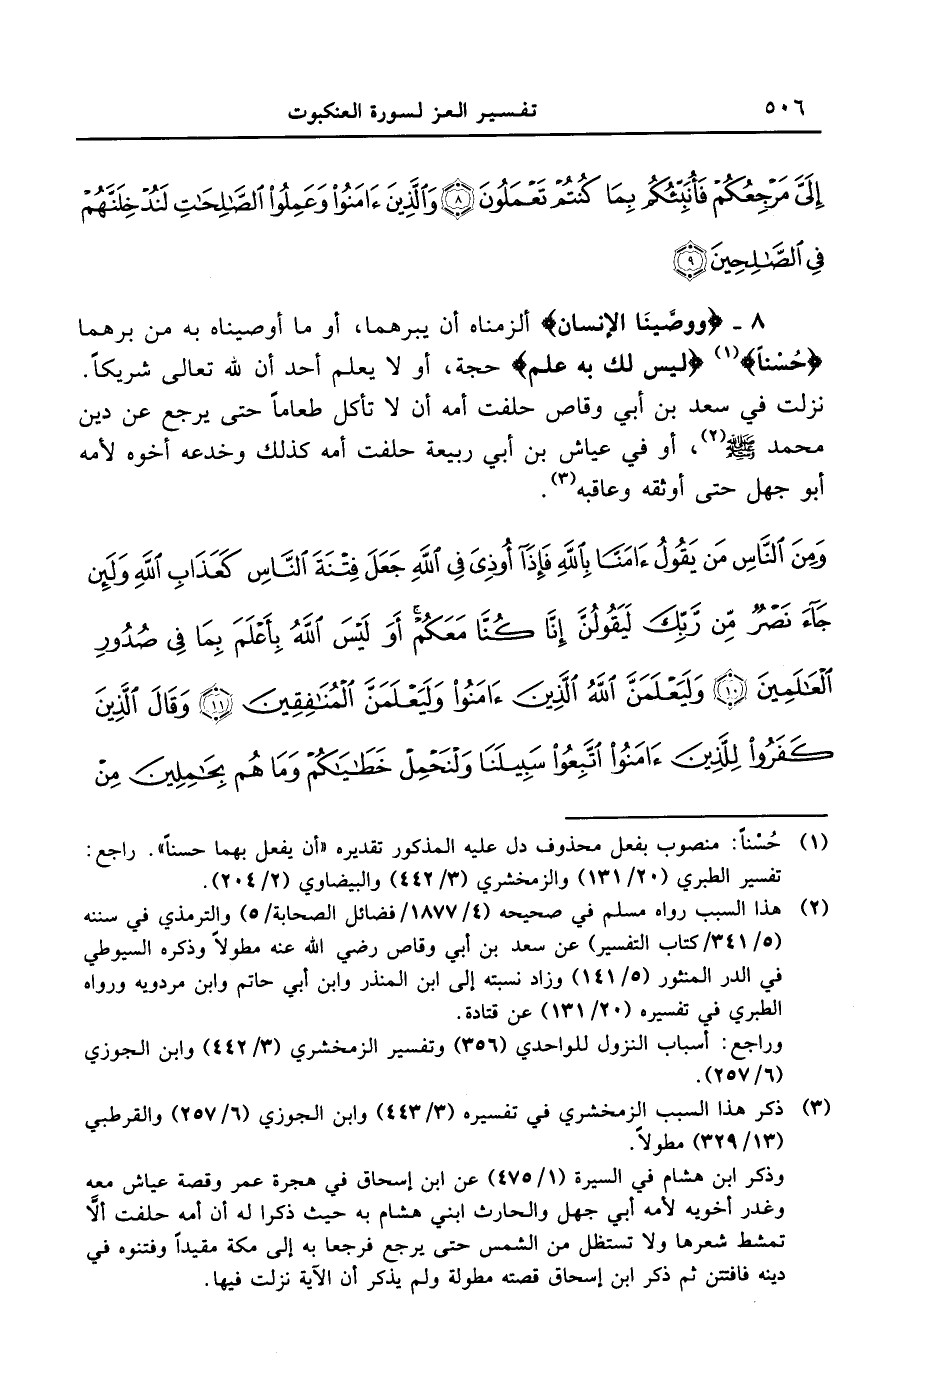 ٥٠٦
تفسير العز لسورة العنكبوت
إِلَىَّ مَرْجِعُكُمْ فَأُنَبِّئُكُم بِمَا كُنتُمْ تَعْمَلُونَ ٨ وَٱلَّذِينَ ءَامَنُوا۟ وَعَمِلُوا۟ ٱلصَّٰلِحَٰتِ لَنُدْخِلَنَّهُمْ
فِى ٱلصَّٰلِحِينَ ٩
٨ - ﴿ووصَّينَا الإنسان﴾ ألزمناه أن يبرهما، أو ما أوصيناه به من برهما
﴿حُسْناً﴾(١) ﴿ليس لك به علم﴾ حجة، أو لا يعلم أحد أن لله تعالى شريكاً.
نزلت في سعد بن أبي وقاص حلفت أمه أن لا تأكل طعاماً حتى يرجع عن دين
محمد ﷺ(٢)، أو في عياش بن أبي ربيعة حلفت أمه كذلك وخدعه أخوه لأمه
أبو جهل حتى أوثقه وعاقبه(٣).
وَمِنَ ٱلنَّاسِ مَن يَقُولُ ءَامَنَّا بِٱللَّهِ فَإِذَآ أُوذِىَ فِى ٱللَّهِ جَعَلَ فِتْنَةَ ٱلنَّاسِ كَعَذَابِ ٱللَّهِ وَلَئِن
جَآءَ نَصْرٌ مِّن رَّبِّكَ لَيَقُولُنَّ إِنَّا كُنَّا مَعَكُمْ ۚ أَوَ لَيْسَ ٱللَّهُ بِأَعْلَمَ بِمَا فِى صُدُورِ
ٱلْعَٰلَمِينَ ١٠ وَلَيَعْلَمَنَّ ٱللَّهُ ٱلَّذِينَ ءَامَنُوا۟ وَلَيَعْلَمَنَّ ٱلْمُنَٰفِقِينَ ١١ وَقَالَ ٱلَّذِينَ
كَفَرُوا۟ لِلَّذِينَ ءَامَنُوا۟ ٱتَّبِعُوا۟ سَبِيلَنَا وَلْنَحْمِلْ خَطَٰيَٰكُمْ وَمَا هُم بِحَٰمِلِينَ مِنْ
(١) حُسْناً: منصوب بفعل محذوف دل عليه المذكور تقديره «أن يفعل بهما حسناً». راجع:
تفسير الطبري (٢٠/١٣١) والزمخشري (٣/٤٤٢) والبيضاوي (٢/٢٠٤).
(٢) هذا السبب رواه مسلم في صحيحه (٤/١٨٧٧/فضائل الصحابة/٥) والترمذي في سننه
(٥/٣٤١/كتاب التفسير) عن سعد بن أبي وقاص رضي الله عنه مطولاً وذكره السيوطي
في الدر المنثور (٥/١٤١) وزاد نسبته إلى ابن المنذر وابن أبي حاتم وابن مردويه ورواه
الطبري في تفسيره (٢٠/١٣١) عن قتادة.
وراجع: أسباب النزول للواحدي (٣٥٦) وتفسير الزمخشري (٣/٤٤٢) وابن الجوزي
(٦/٢٥٧).
(٣) ذكر هذا السبب الزمخشري في تفسيره (٣/٤٤٣) وابن الجوزي (٦/٢٥٧) والقرطبي
(١٣/٣٢٩) مطولاً.
وذكر ابن هشام في السيرة (١/٤٧٥) عن ابن إسحاق في هجرة عمر وقصة عياش معه
وغدر أخويه لأمه أبي جهل والحارث ابني هشام به حيث ذكرا له أن أمه حلفت ألَّا
تمشط شعرها ولا تستظل من الشمس حتى يرجع فرجعا به إلى مكة مقيداً وفتنوه في
دينه فافتتن ثم ذكر ابن إسحاق قصته مطولة ولم يذكر أن الآية نزلت فيها.